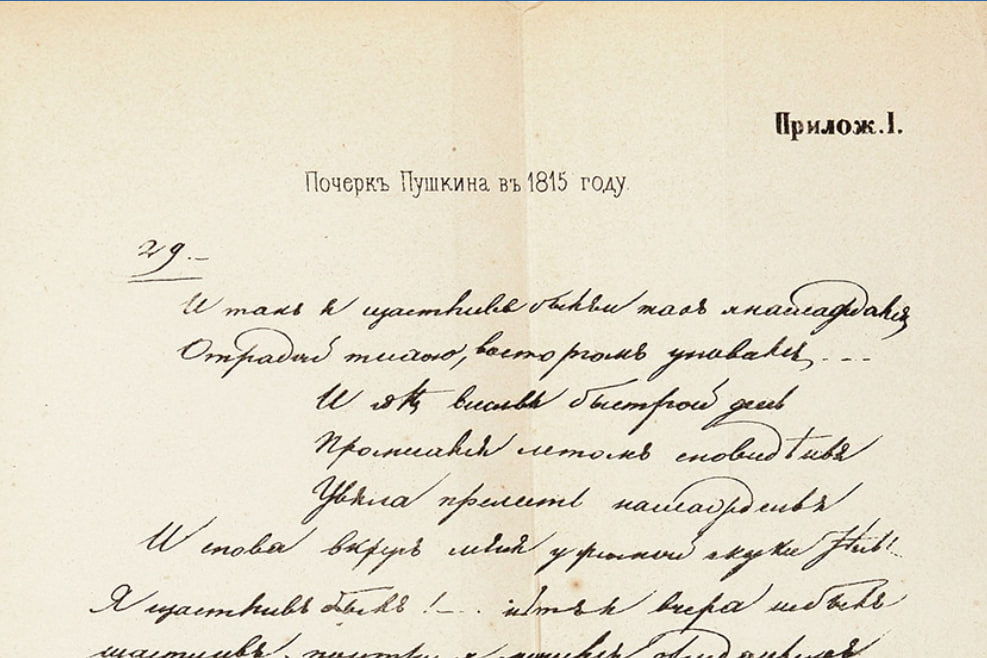 Прилож. I.
Почеркъ Пушкина въ 1815 году.
29.
И такъ я щастливъ былъ и такъ я наслаждался
Отрадой тихою, восторгомъ упивался, . . .
И гдѣ веселья быстрой день
Промчался лётомъ сновидѣнья
Увяла прелесть наслажденья
И снова вкругъ меня угрюмой скуки тѣнь!..
Я щастливъ былъ! . . . нѣтъ я вчера не былъ
щастливъ, поутру я мучился ожиданьемъ